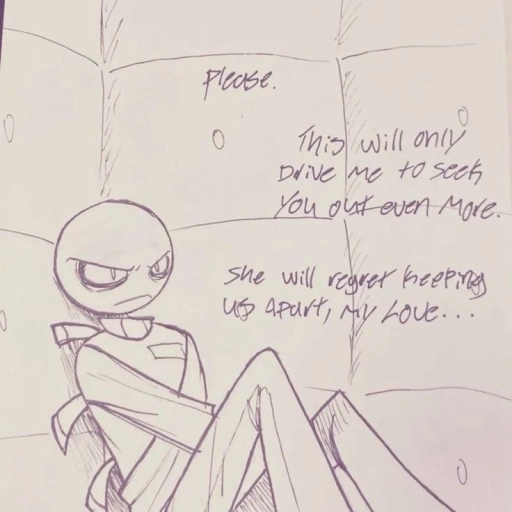 Please.
This will only
Drive me to seek
You out even more.
She will regret keeping
us apart, my love...